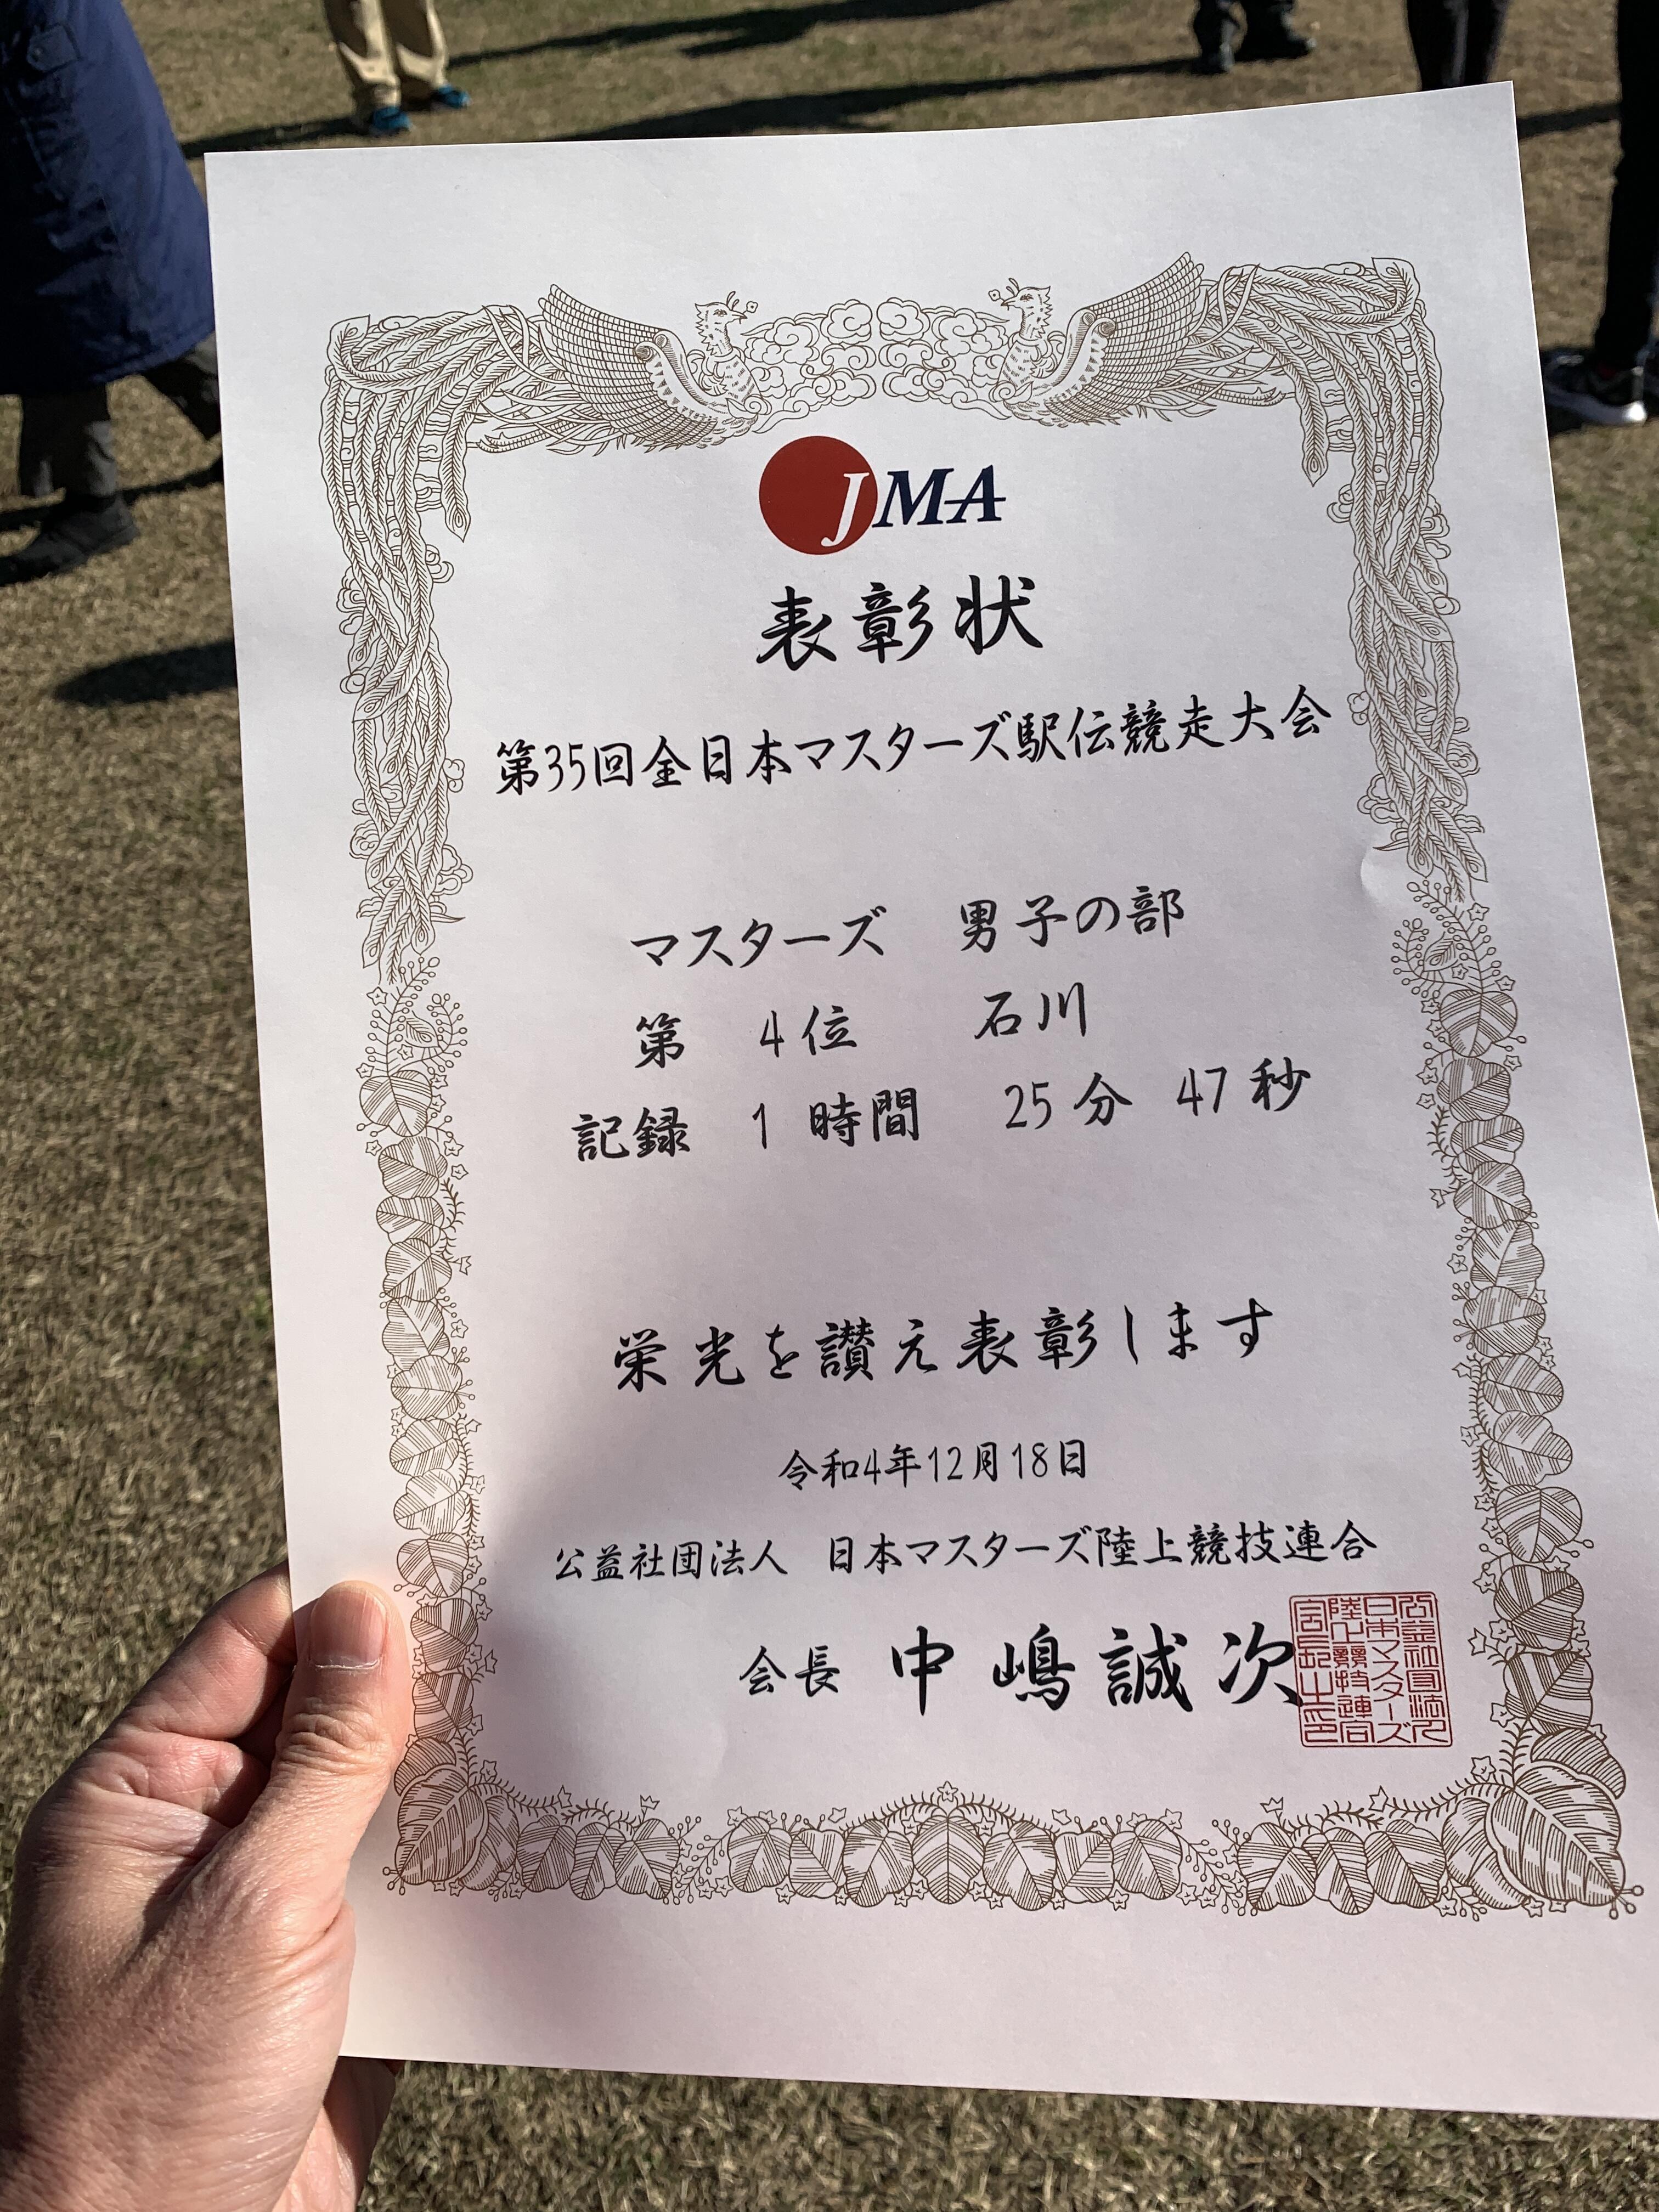 JMA
表彰状
第35回全日本マスターズ駅伝競走大会
マスターズ 男子の部
第 4位 石川
記録 1 時間 25分 47秒
栄光を讃え表彰します
令和4年12月18日
公益社団法人 日本マスターズ陸上競技連合
会長 中嶋誠次
公益社団法人
日本マスターズ
陸上競技連合
会長之印